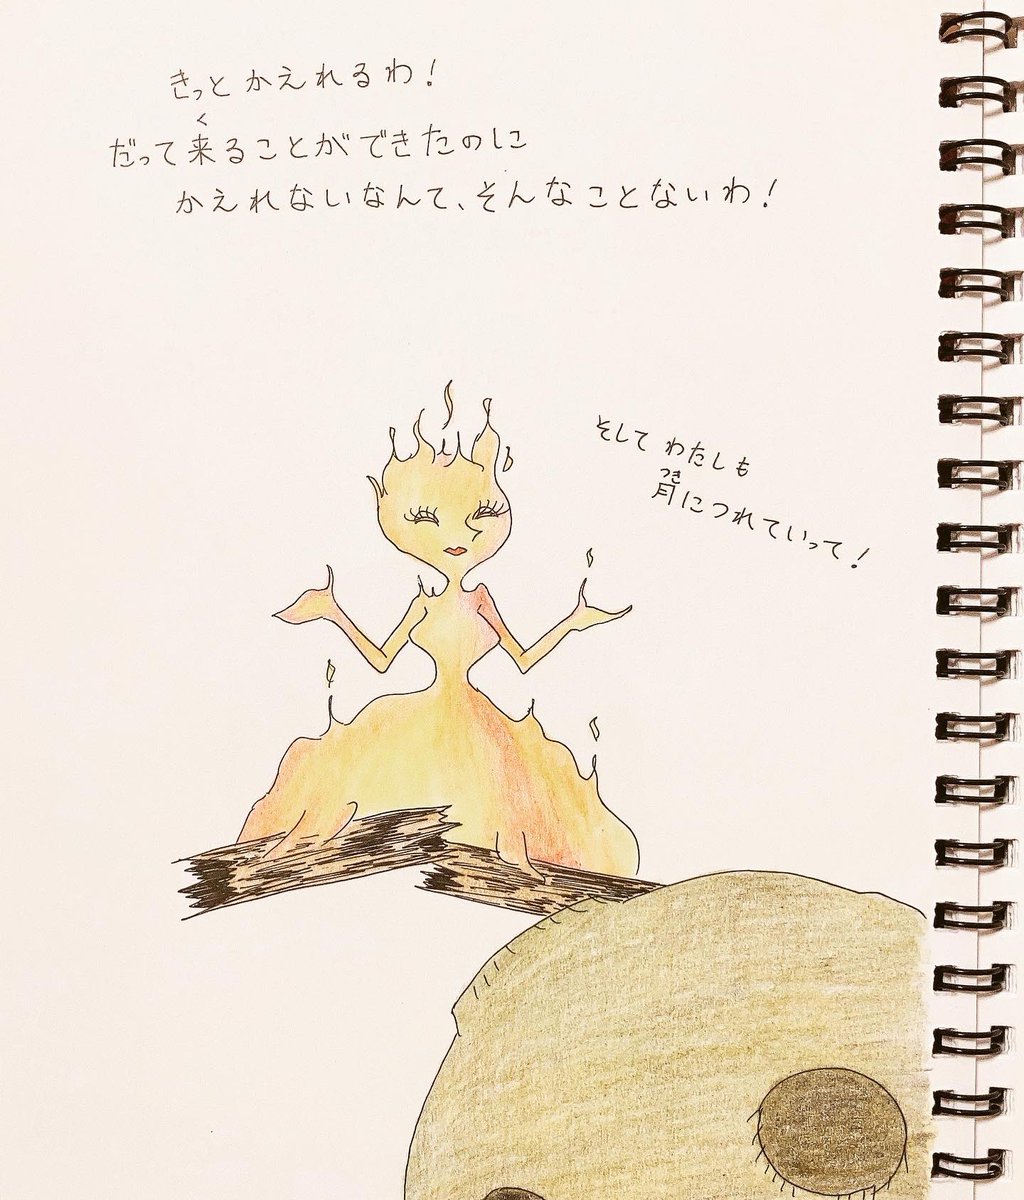 きっとかえれるわ！
く
だって来ることができたのに
かえれないなんて、そんなことないわ！
そしてわたしも
つき
月につれていって！